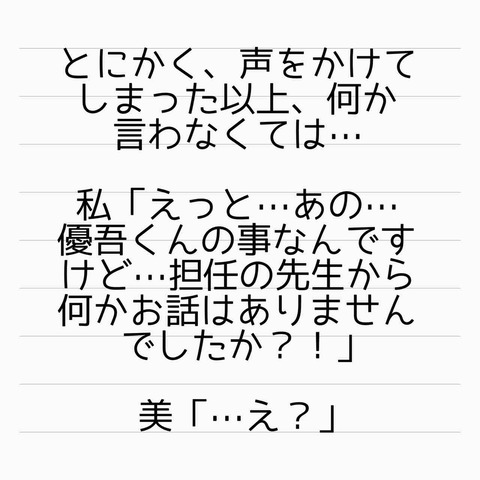 とにかく、声をかけて
しまった以上、何か
言わなくては…
私「えっと…あの…
優吾くんの事なんです
けど…担任の先生から
何かお話はありません
でしたか？！」
美「…え？」